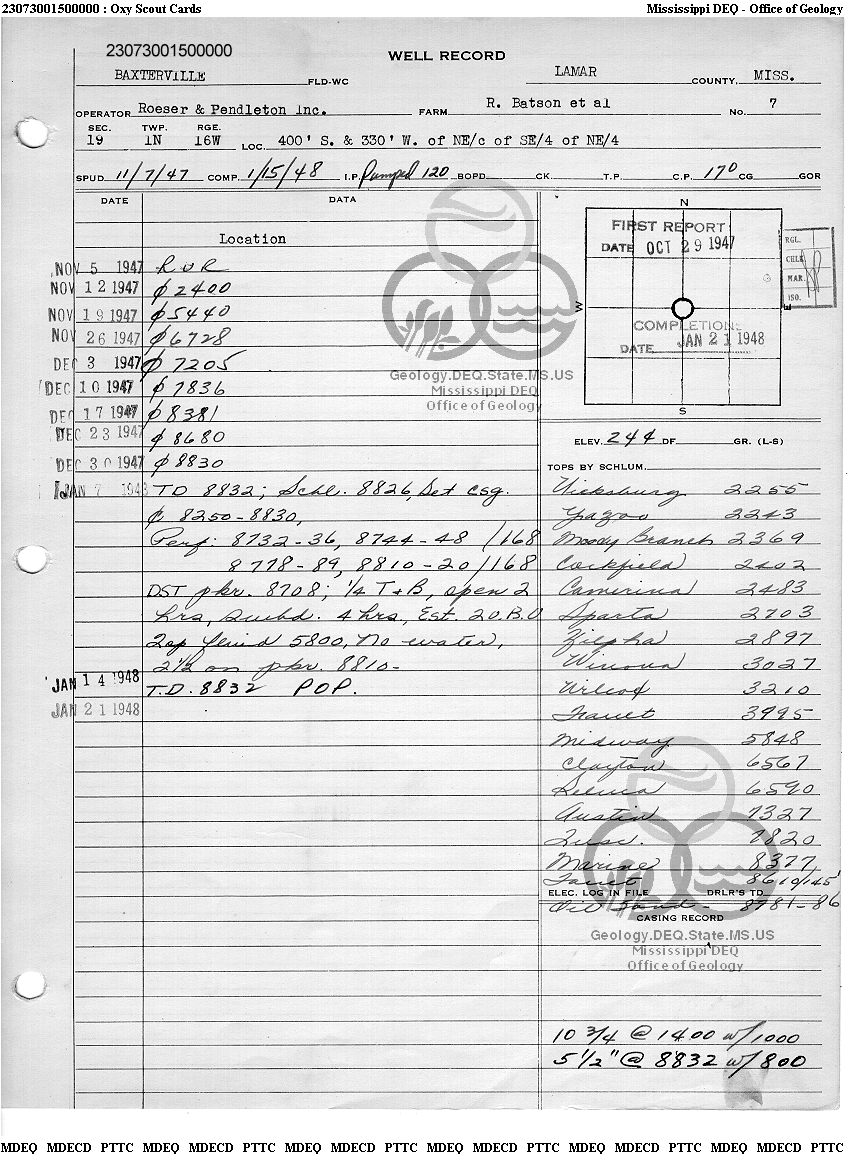 23073001500000 : Oxy Scout Cards Mississippi DEQ - Office of Geology
23073001500000
WELL RECORD
BAXTERVILLE FLD-WC LAMAR COUNTY, MISS.
OPERATOR Roeser & Pendleton Inc. FARM R. Batson et al No. 7
SEC. TWP. RGE.
19 1N 16W LOC. 400' S. & 330' W. of NE/c of SE/4 of NE/4
SPUD 11/7/47 COMP. 1/15/48 I.P. Pumped 120 BOPD CK. T.P. C.P. 170 CG GOR
DATE DATA
Location
NOV 5 1947 R U R
NOV 12 1947 ⌀ 2400
NOV 19 1947 ⌀ 5440
NOV 26 1947 ⌀ 6728
DEC 3 1947 ⌀ 7205
DEC 10 1947 ⌀ 7836
DEC 17 1947 ⌀ 8381
DEC 23 1947 ⌀ 8680
DEC 30 1947 ⌀ 8830
JAN 7 1948 TD 8832; Schl. 8826, Set csg.
8250-8830,
Perf: 8732-36, 8744-48 /168
8778-89, 8810-20/168
DST pkr. 8708; 1/4 T&B, open 2
hrs, Swbd. 4 hrs, Est. 20 B.O
Top fluid 5800, No water,
2 1/2 on pkr. 8810-
JAN 14 1948 T.D. 8832 POP.
JAN 21 1948
N
FIRST REPORT
DATE OCT 29 1947
W
E
COMPLETION
DATE JAN 21 1948
S
RGL.
CHLK
MAR.
ISO.
ELEV. 244 DF GR. (L-S)
TOPS BY SCHLUM.
Vicksburg 2255
Yazoo 2243
Moody Branch 2369
Cockfield 2402
Camerina 2483
Sparta 2703
Zilpha 2897
Winona 3027
Wilcox 3210
3995
Midway 5848
Clayton 6567
Selma 6590
Austin 7327
Tusc. 7820
Marine 8377
8610/145'
ELEC. LOG IN FILE DRLR'S TD
Oil Sand 8781-86
CASING RECORD
10 3/4 @ 1400 w/1000
5 1/2" @ 8832 w/800
Geology.DEQ.State.MS.US
Mississippi DEQ
Office of Geology
Geology.DEQ.State.MS.US
Mississippi DEQ
Office of Geology
MDEQ MDECD PTTC MDEQ MDECD PTTC MDEQ MDECD PTTC MDEQ MDECD PTTC MDEQ MDECD PTTC MDEQ MDECD PTTC